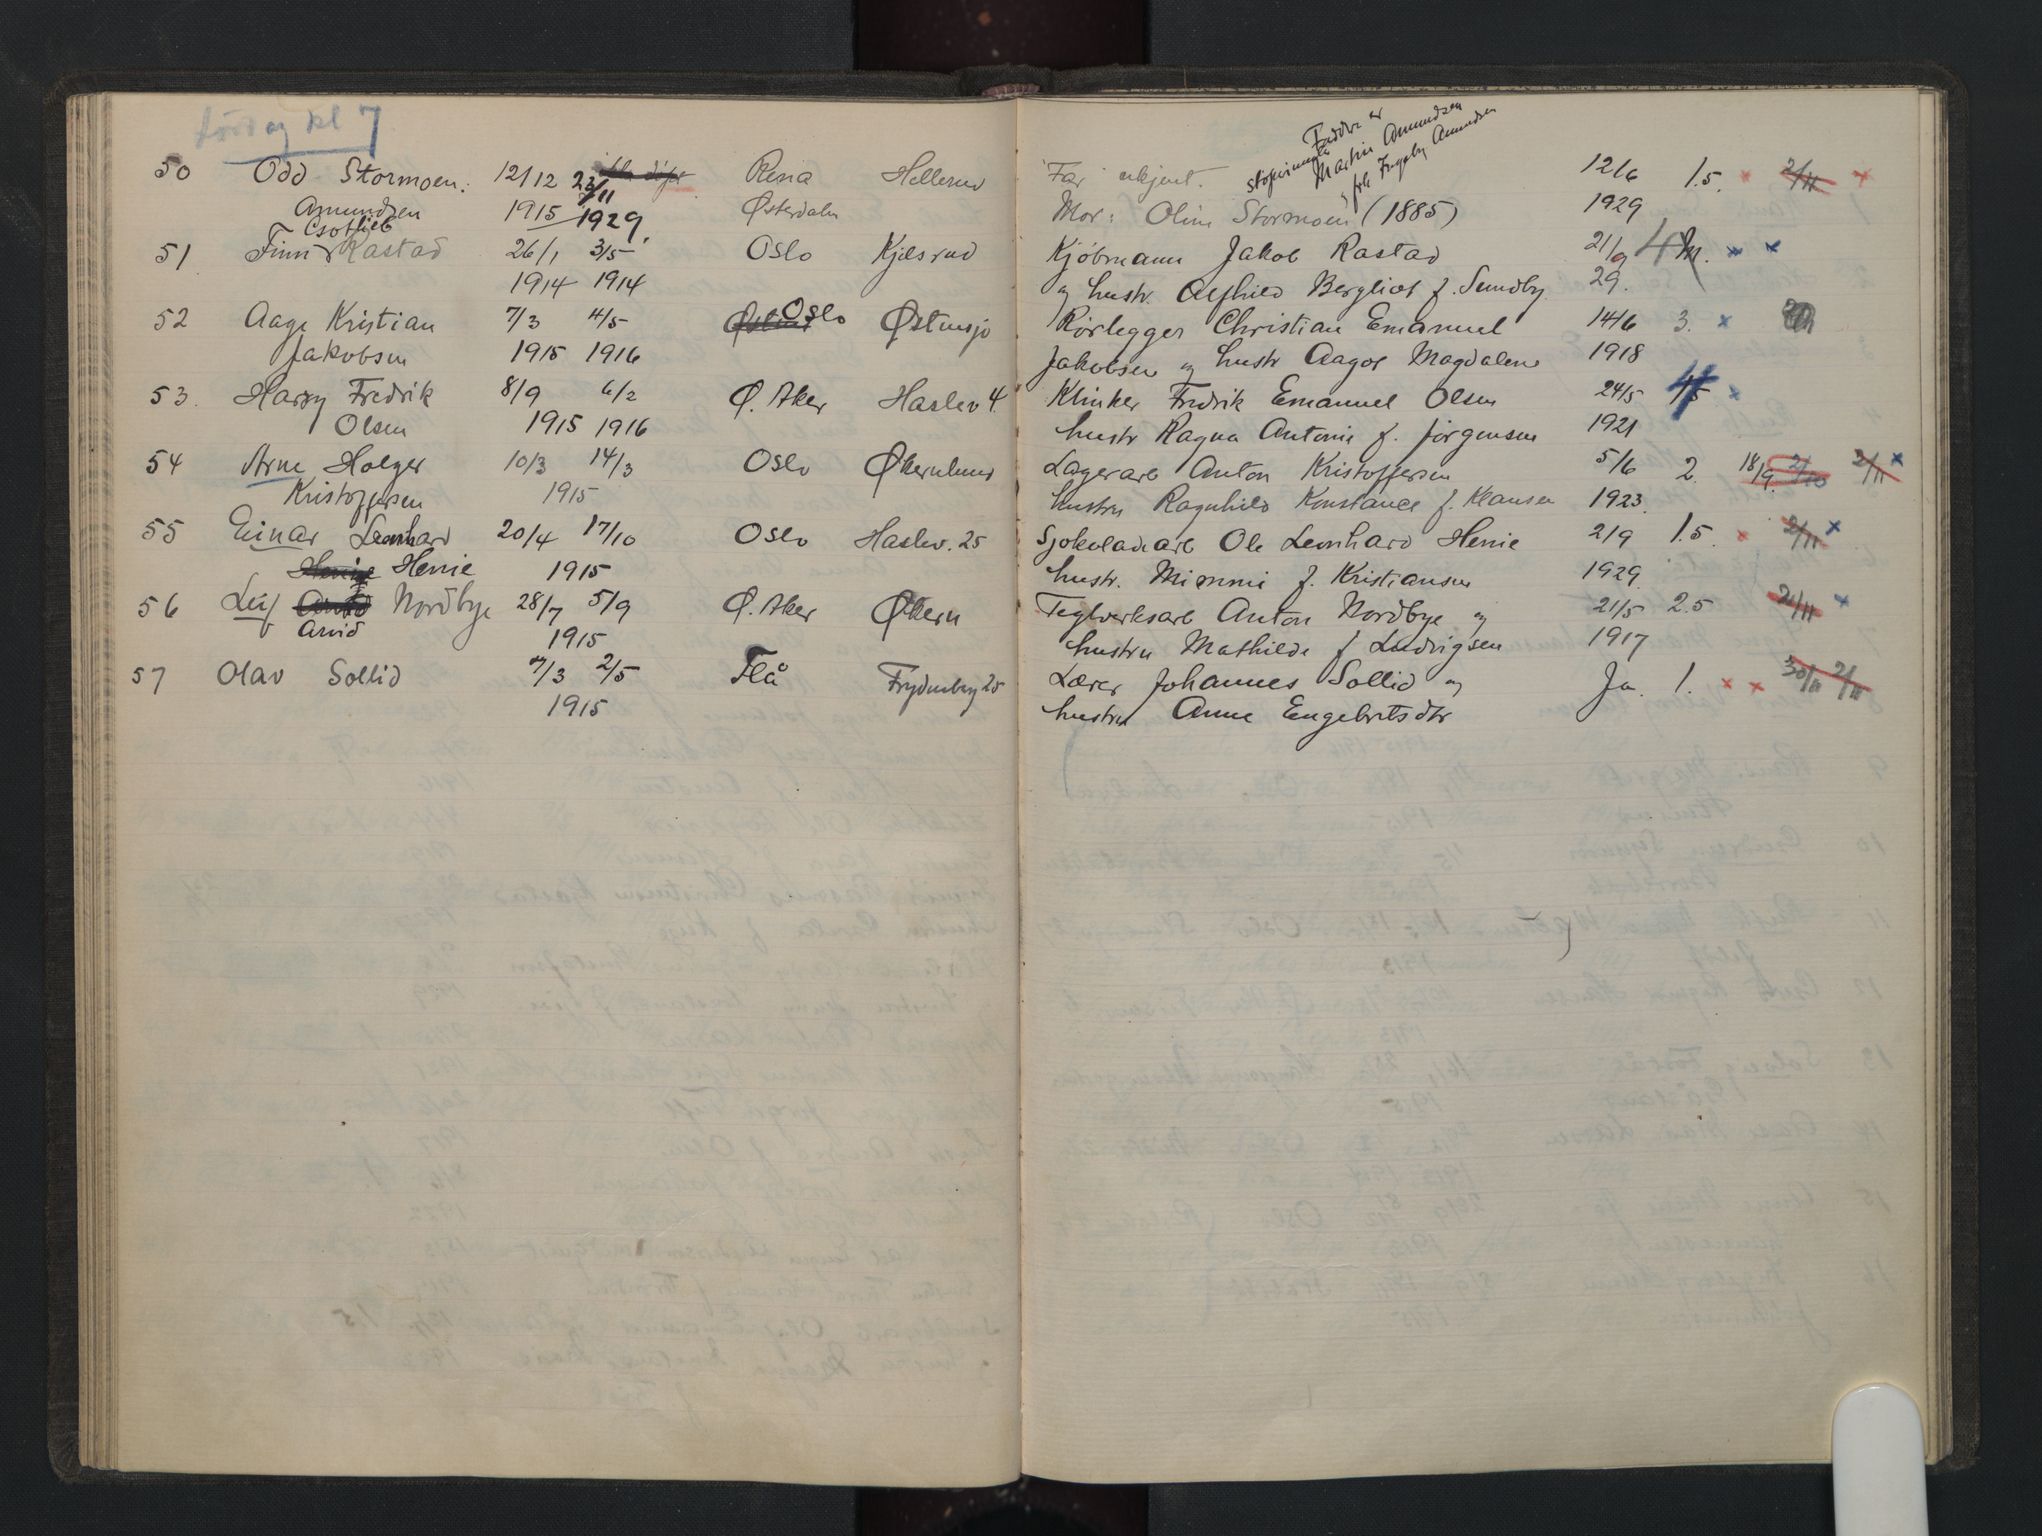 kl 7
50 Odd Stormoen. 12/12 23/11 Rena Hellerud
Amundsen 1915 1929. Østerdalen
51 Finn Gotlieb Rastad 26/1 3/5 Oslo Kjelsrud
1914 1914
52 Aage Kristian 7/3 4/5 Oslo Østensjø
Jakobsen 1915 1916
53. Harry Fredrik 8/9 6/2 Ø. Aker Haslev 4.
Olsen 1915 1916
54 Arne Holger 10/3 14/3 Oslo Økernlund
Kristoffersen 1915
55 Einar Leonhard 20/4 17/10 Oslo Haslev. 25
Henie 1915
56 Leif Nordbye 28/7 5/9 Ø. Aker Økern
Arvid 1915
57 Olav Sollid 7/3 2/5 Flå Frydenberg 25
1915
Martin Amundsen
Ingeborg Amundsen
Far ukjent. 12/6 1.5. 2/11
Mor: Oline Stormoen (1885) 1929
Kjøbmann Jakob Rastad 21/9 4
og hustr. Alfhild Bergliot f. Sundby. 29.
Rørlegger Christian Emanuel 14/6 3.
Jakobsen og hustr Aagot Magdalene 1918
Klinker Fredrik Emanuel Olsen 24/5
hustr Ragna Antonie f. Jørgensen 1921
Lagerarb Anton Kristoffersen 5/6 2. 18/9. 2/10 2/11
hustru Ragnhild Konstance f. Klausen 1923.
Sjokoladearb Ole Leonhard Henie 2/9 1.5. 2/11
hustr. Mimmi f. Kristiansen 1929.
Teglverksarb Anton Nordbye og 21/5 2.5 2/11
hustru Mathilde f Ludvigsen 1917
Lærer Johannes Sollid og Ja. 1. 30/11 2/11
hustru Anne Engebretsdtr